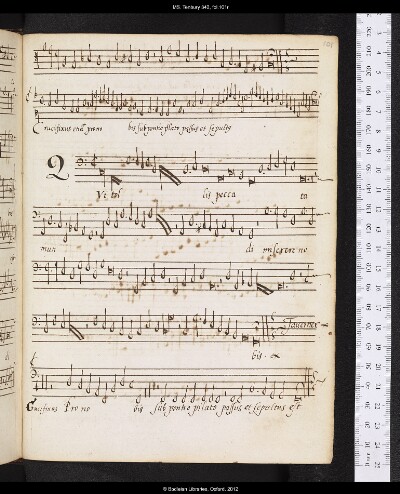 MS. Tenbury 340, fol.101r
101
Crucifixus etiā pro no bis sub pontio pilato passus et sepultus
Qui tol lis pecca ta
mun di miserere no
Tauerner
bis. a
Crucifixus Pro no bis sub pontio pilato passus et sepultus est
© Bodleian Libraries, Oxford, 2012